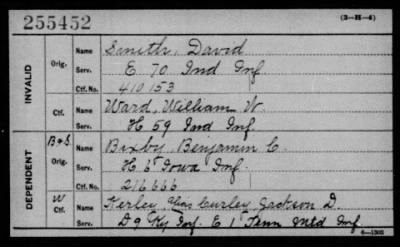 255452
(3-H-4)
INVALID
Orig.
Name Smith, David
Serv. E 70 Ind Inf.
Ctf. No. 410153
Ctf.
Name Ward, William W.
Serv. H 59 Ind Inf.
DEPENDENT
B & S.
Orig.
Name Bixby, Benjamin C.
Serv. H 6" Iowa Inf.
Ctf. No. 216666
W
Ctf.
Name Kerley, alias Curley, Jackson D.
Serv. D 9 Ky Inf. E 1" Tenn Mtd Inf.
6—1302